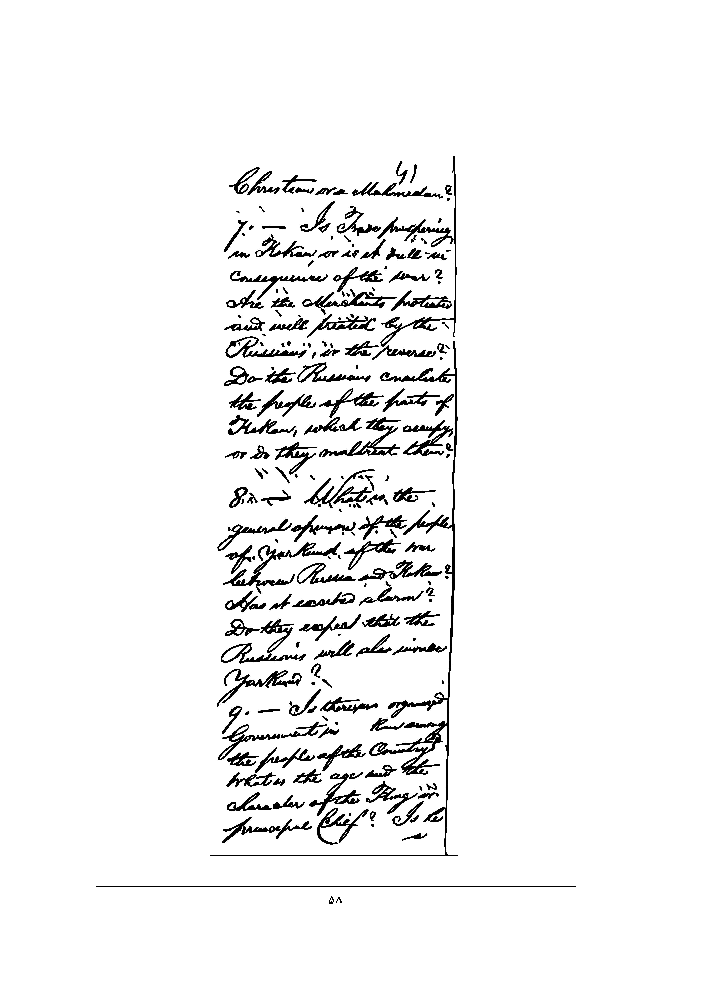 41
Christian or a Mahmedan?
7. — Is Trade prospering
in Kokan, or is it dull in
consequence of the war?
Are the Merchants protected
and well treated by the
Russians, or the reverse?
Do the Russians conciliate
the people of the parts of
Kokan, which they occupy,
or do they maltreat them?
8. — What is the
general opinion of the people
of Yarkund of the war
between Russia and Kokan?
Has it excited alarm?
Do they expect that the
Russians will also invade
Yarkund?
9. — Is there an organized
Government in among
the people of the Country?
What is the age and the
character of the King or
principal Chief? Is he
۵۸